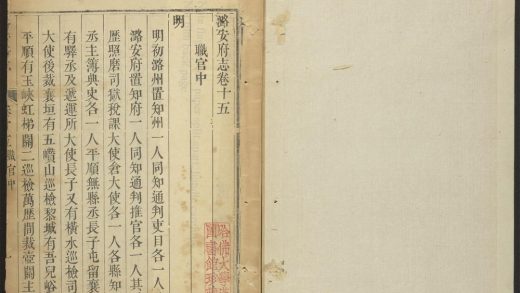 潞安府志卷十五
職官中
明
明初潞州置知州一人同知通判吏目各一人
潞安府置知府一人同知通判推官各一人其
歷照磨司獄稅課大使倉大使各一人各縣知
丞主簿典史各一人平順無縣丞長子屯留襄
有驛丞及遞運所大使長子又有橫水巡檢司
大使後裁襄垣有五𡾊山巡檢黎城有吾兒峪
平順有玉峽虹梯關二巡檢萬歷間裁壺關主
職官中